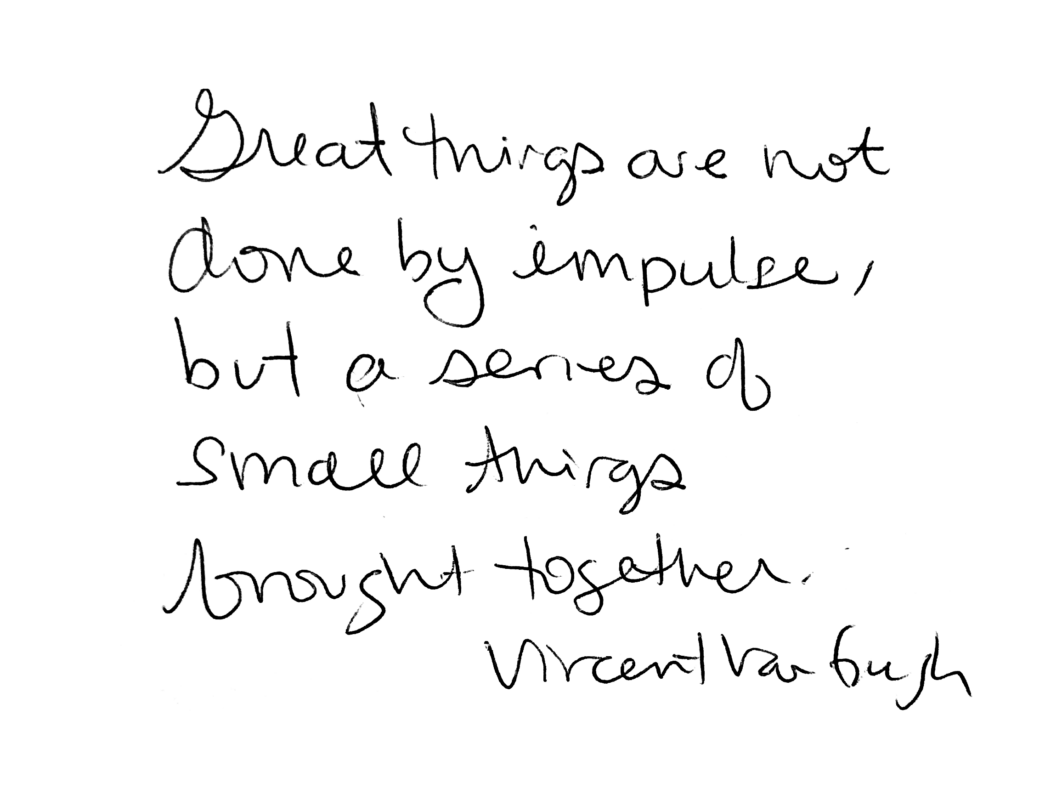 Great things are not
done by impulse,
but a series of
small things
brought together.
Vincent Van Gogh